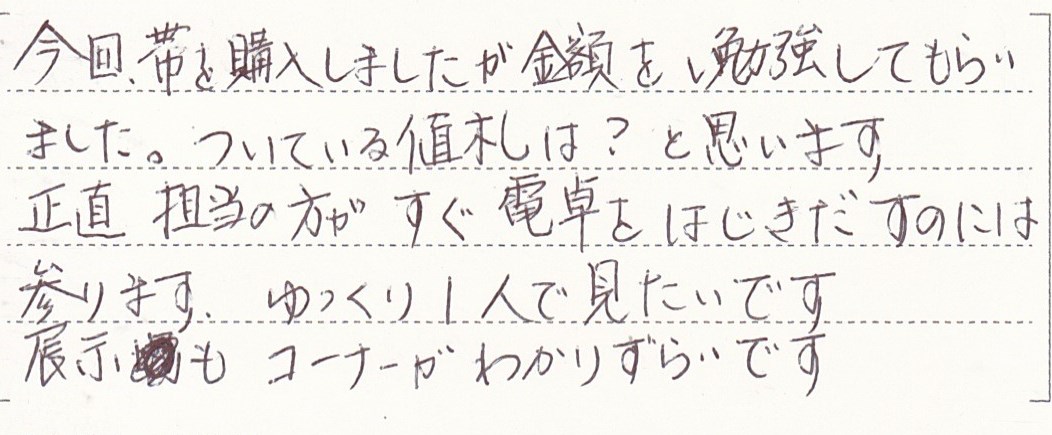 今回、帯を購入しましたが金額を、勉強してもらい
ました。ついている値札は？と思います
正直 担当の方が すぐ 電卓を はじきだすのには
参ります。 ゆっくり1人で見たいです
展示も コーナーが わかりずらいです